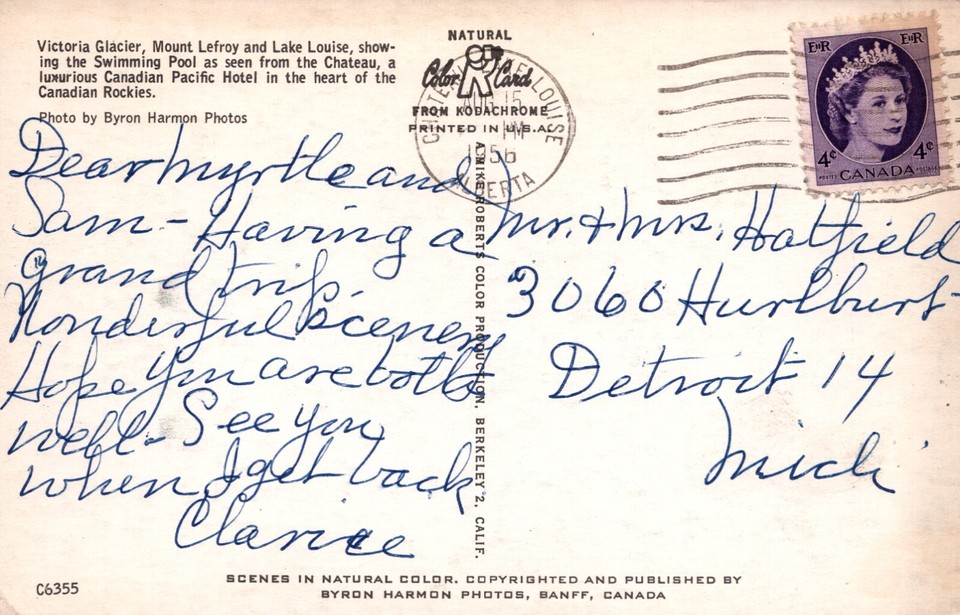 Victoria Glacier, Mount Lefroy and Lake Louise, show-
ing the Swimming Pool as seen from the Chateau, a
luxurious Canadian Pacific Hotel in the heart of the
Canadian Rockies.
Photo by Byron Harmon Photos
NATURAL
Color Card
FROM KODACHROME
PRINTED IN U.S.A.
LOUISE
AUG 15
PM
1956
ALBERTA
EIIR EIIR
4¢ 4¢
POSTES CANADA POSTAGE
Dear Myrtle and
Sam - Having a
grand trip.
Wonderful scenery
Hope you are both
well - See you
when I get back
Clarice
Mr. & Mrs. Hatfield
3060 Hurlburt
Detroit 14
Mich
A MIKE ROBERTS COLOR PRODUCTION, BERKELEY 2, CALIF.
C6355
SCENES IN NATURAL COLOR. COPYRIGHTED AND PUBLISHED BY
BYRON HARMON PHOTOS, BANFF, CANADA